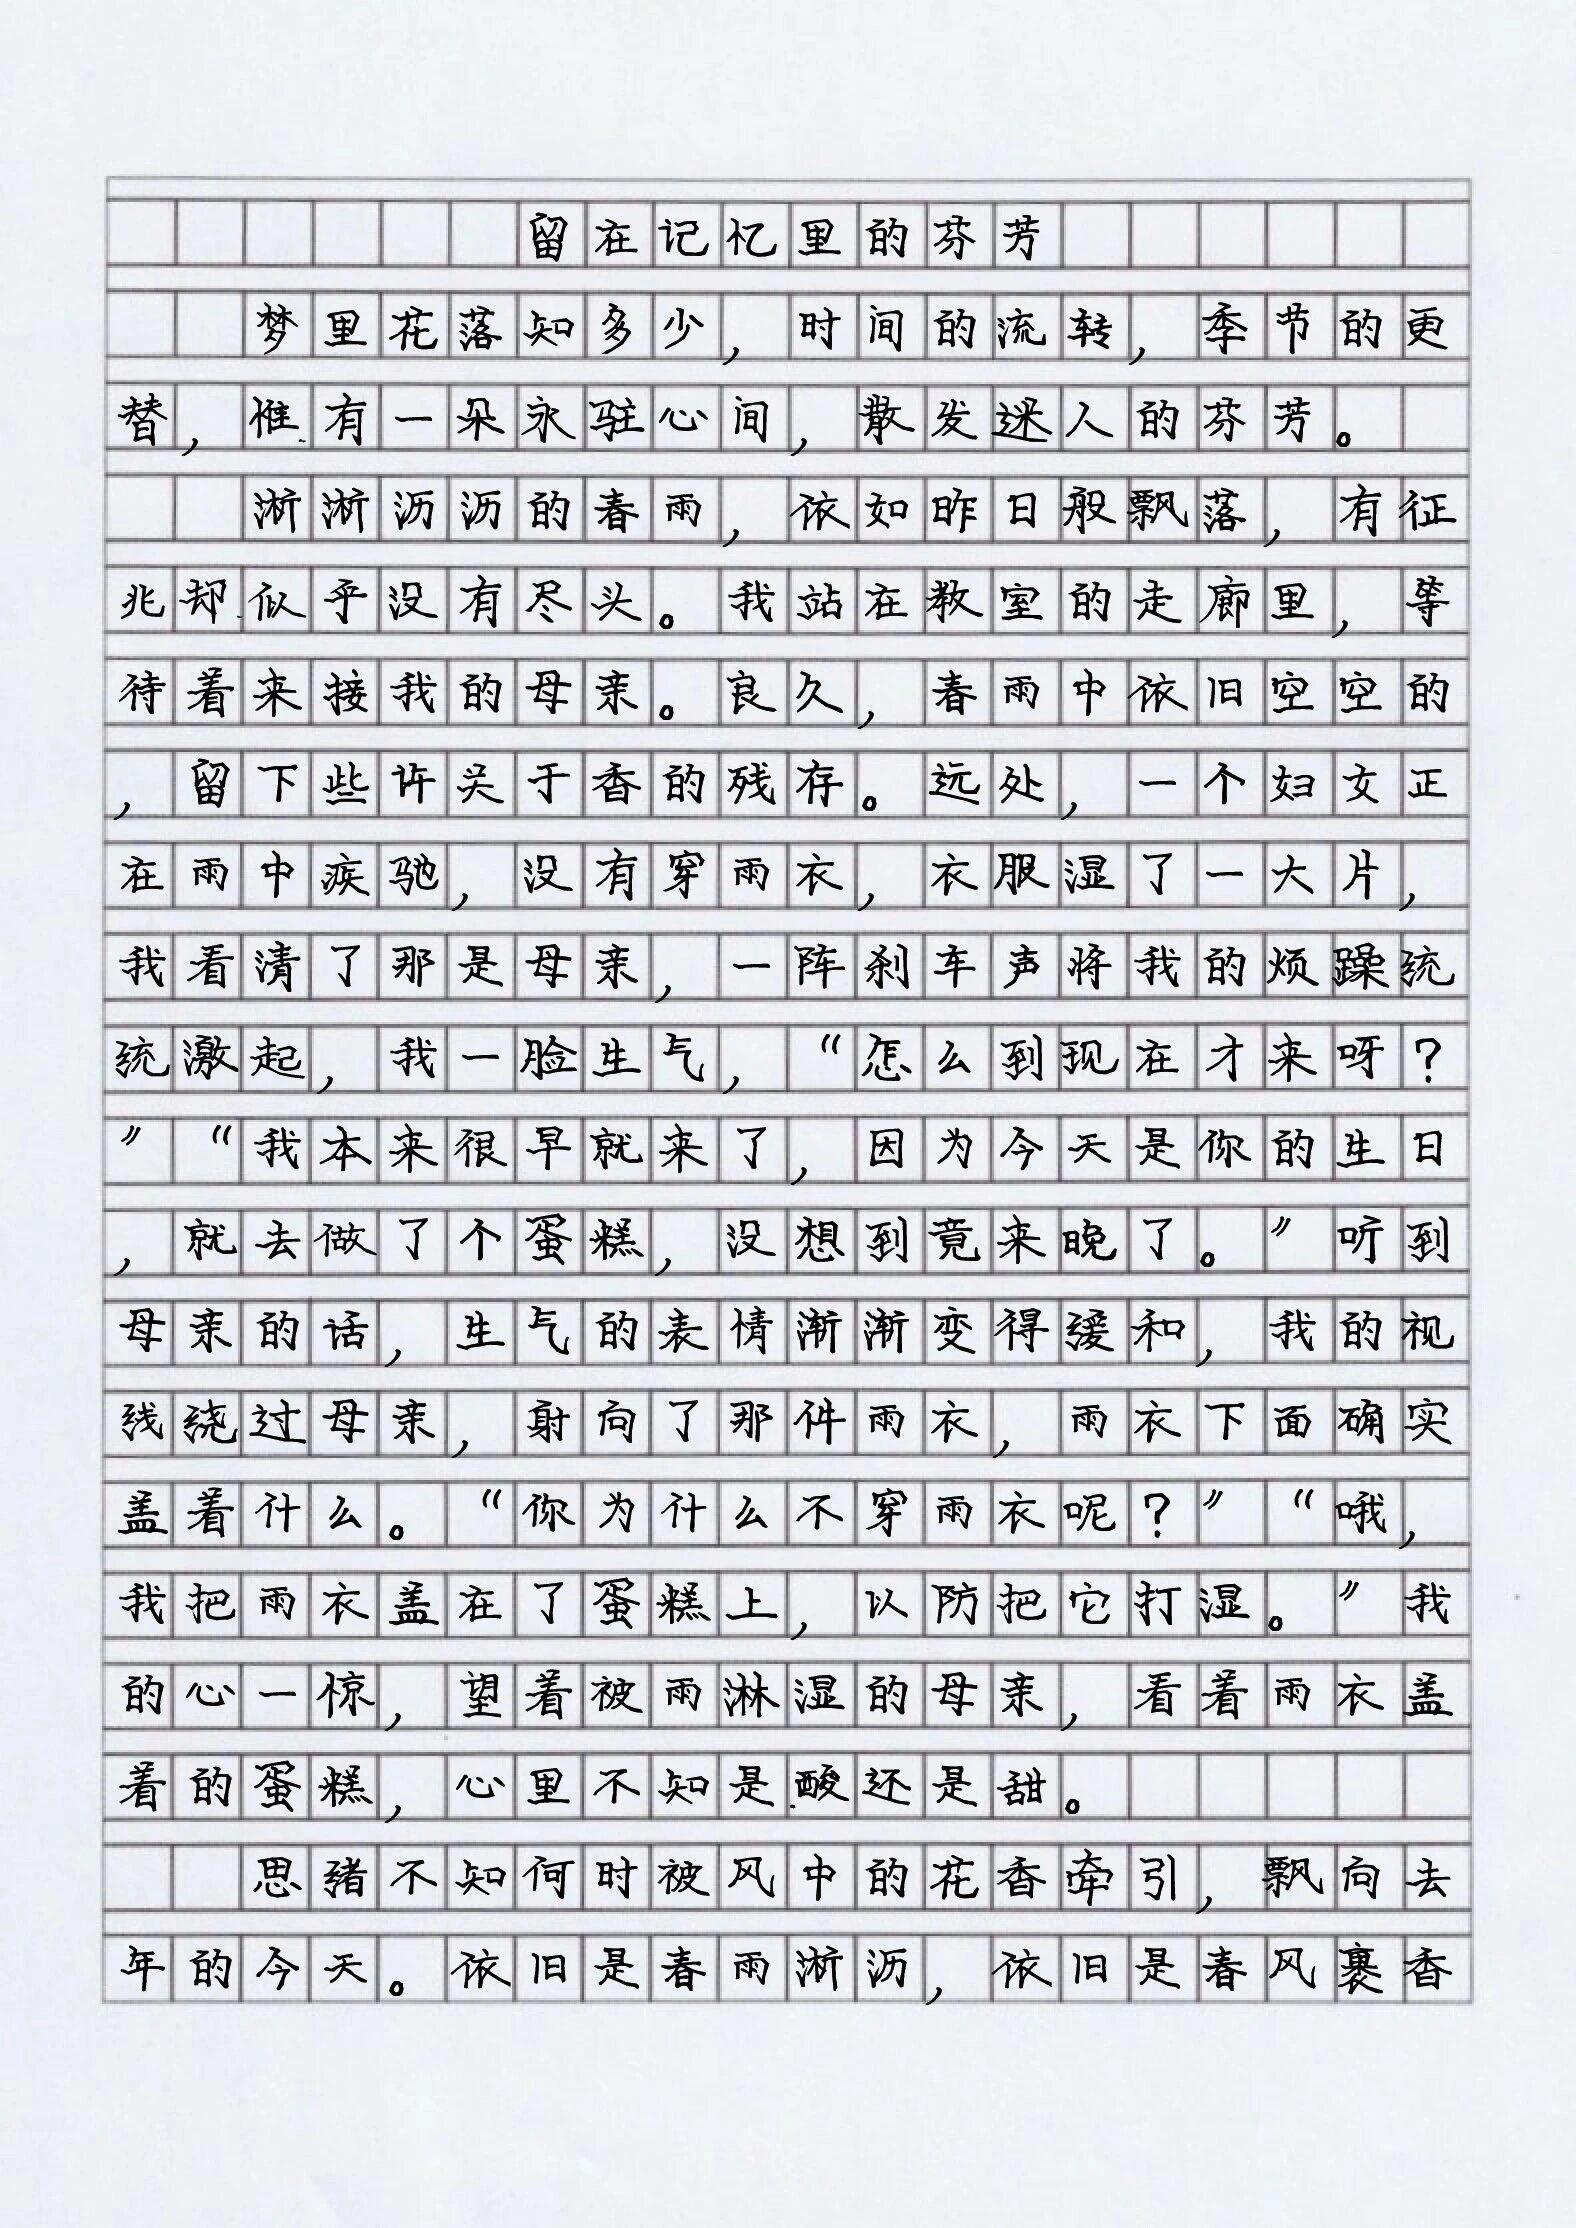 留在记忆里的芬芳
梦里花落知多少，时间的流转，季节的更
替，惟有一朵永驻心间，散发迷人的芬芳。
淅淅沥沥的春雨，依如昨日般飘落，有征
兆却似乎没有尽头。我站在教室的走廊里，等
待着来接我的母亲。良久，春雨中依旧空空的
，留下些许关于香的残存。远处，一个妇女正
在雨中疾驰，没有穿雨衣，衣服湿了一大片，
我看清了那是母亲，一阵刹车声将我的烦躁统
统激起，我一脸生气，“怎么到现在才来呀？
”“我本来很早就来了，因为今天是你的生日
，就去做了个蛋糕，没想到竟来晚了。”听到
母亲的话，生气的表情渐渐变得缓和，我的视
线绕过母亲，射向了那件雨衣，雨衣下面确实
盖着什么。“你为什么不穿雨衣呢？”“哦，
我把雨衣盖在了蛋糕上，以防把它打湿。”我
的心一惊，望着被雨淋湿的母亲，看着雨衣盖
着的蛋糕，心里不知是酸还是甜。
思绪不知何时被风中的花香牵引，飘向去
年的今天。依旧是春雨淅沥，依旧是春风裹香